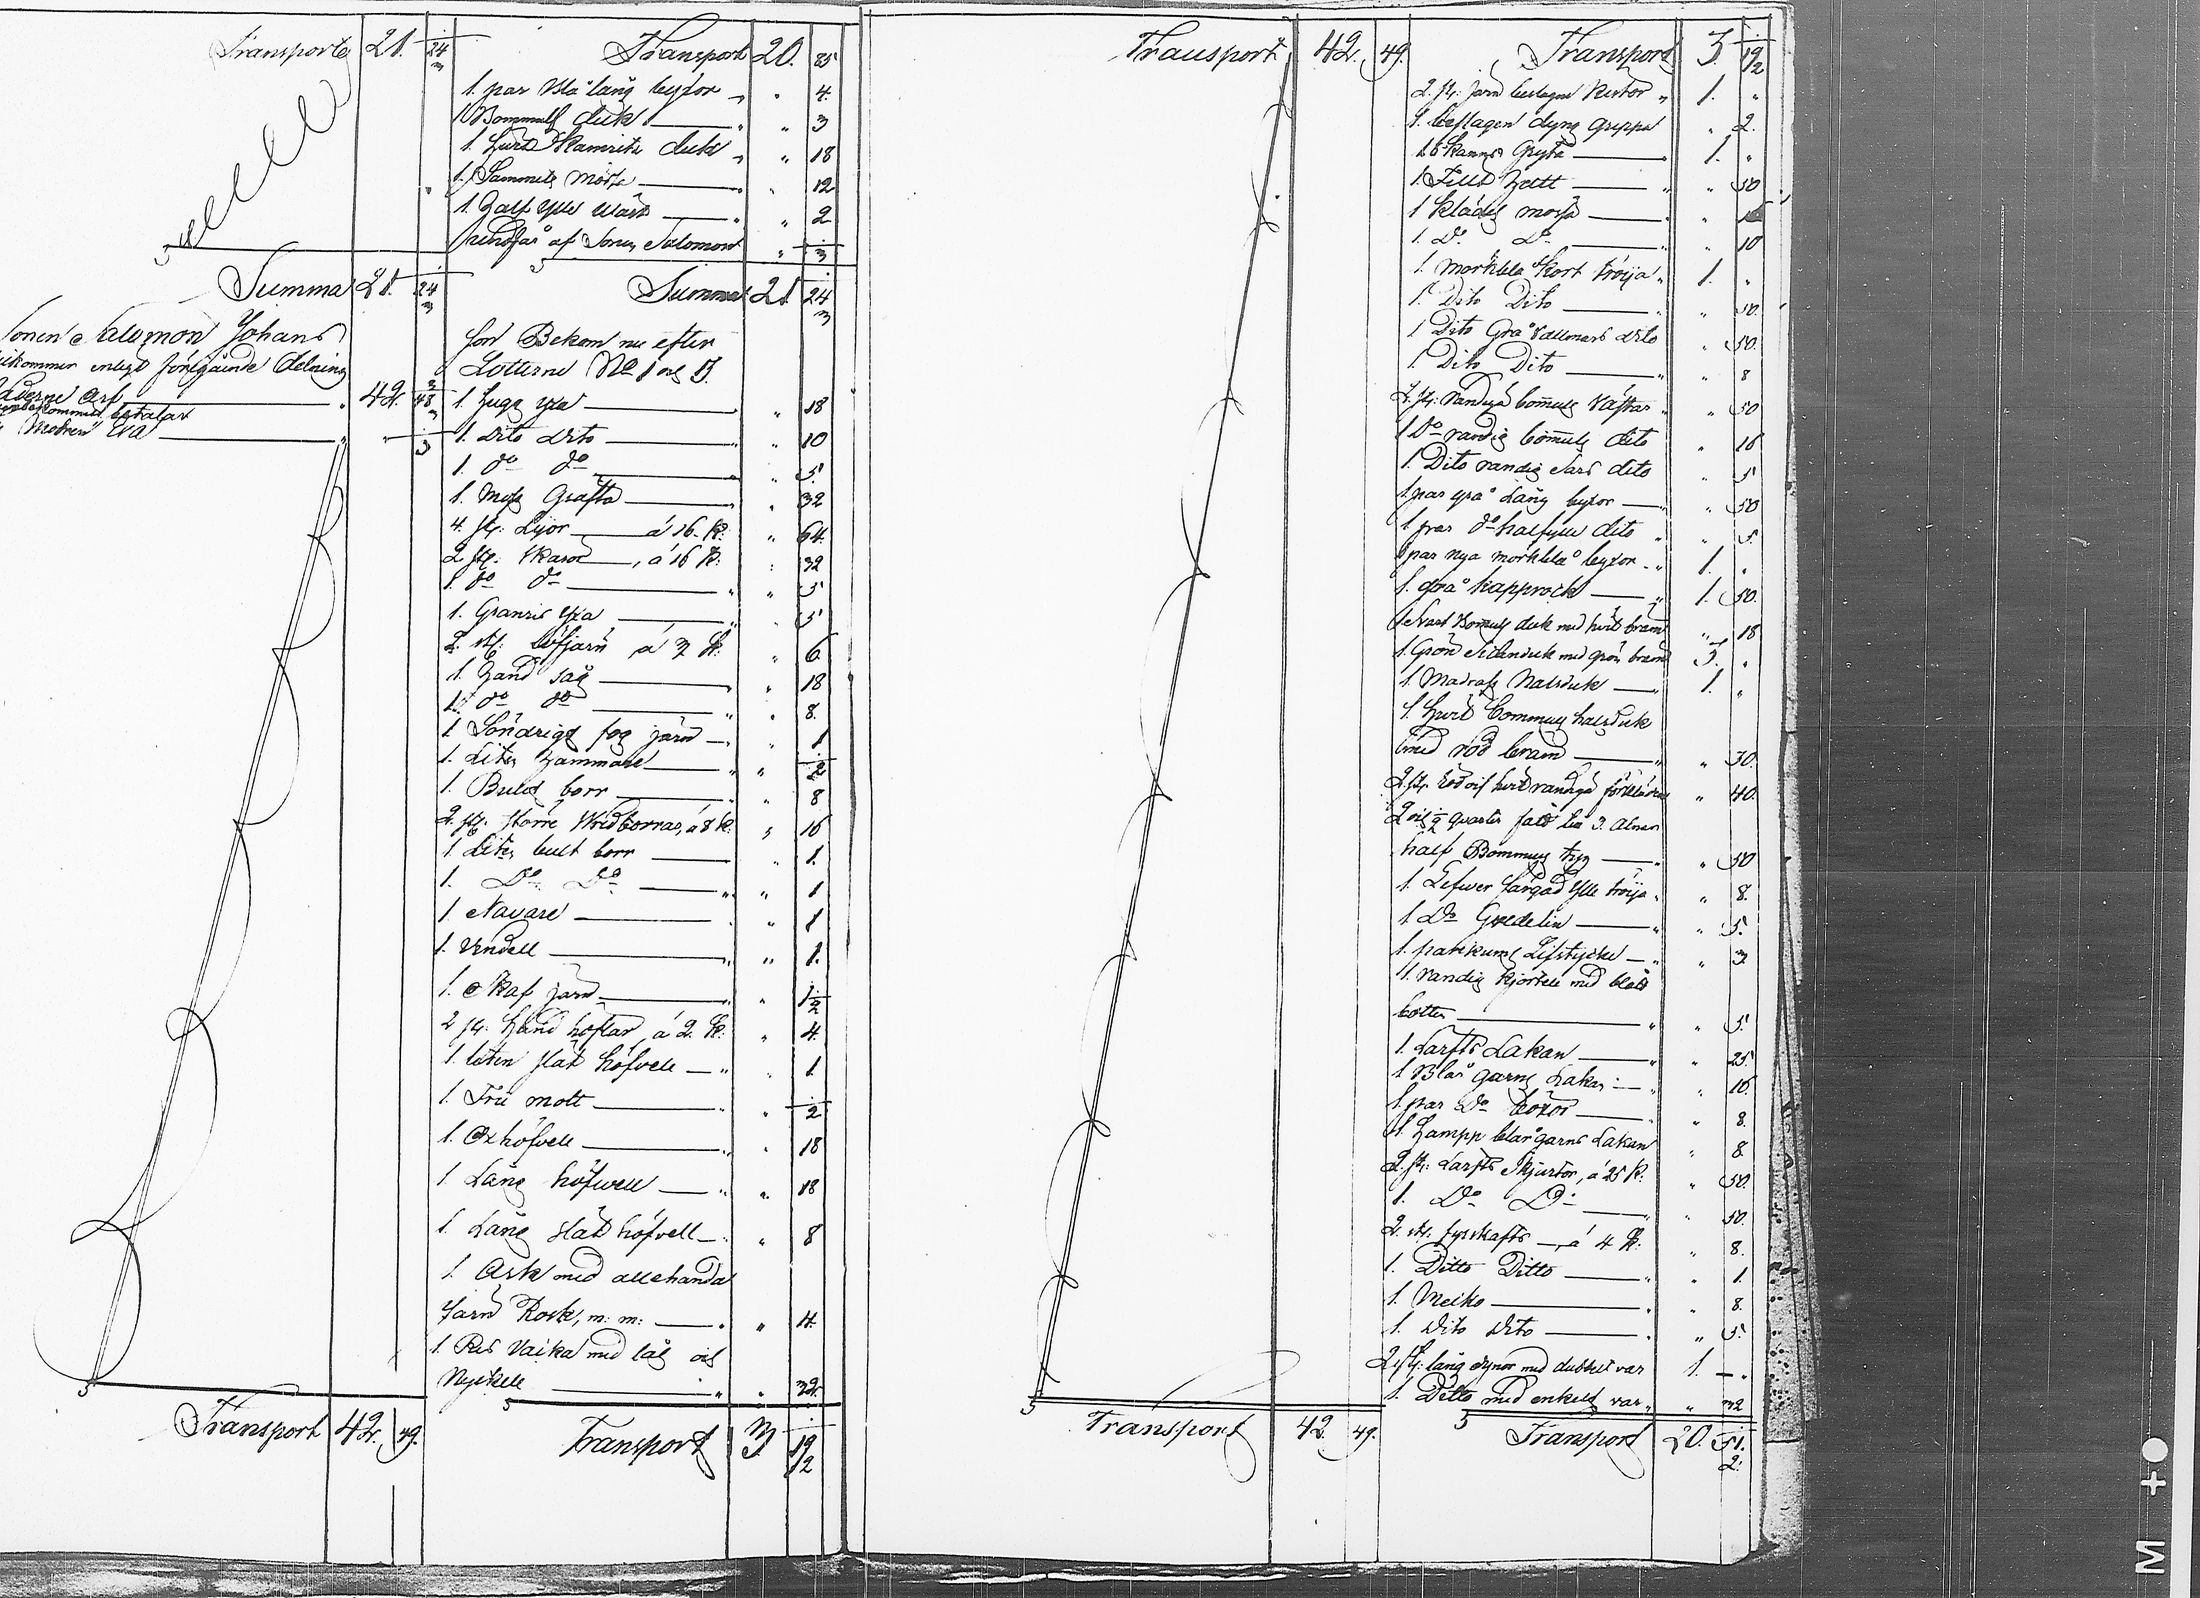 Transport 21. 24
Summa 21. 24
Sonen Salomon Johans
enligt föregående delning
arf 42. 48
betalar
Modren Eva
Transport 42. 49.
Transport 20. 85
1. par blå lång byxor " 4.
1 Bommulls duk " 3
1. hvit Kamriks duk " 18
1. Sammets mössa " 12
1. half ylle " 2
af Sonen Salomon
Summa 21. 24
son Bekom nu efter
Lotterne No 1 och 3.
1 hugg yxa " 18
1. Dito Dito " 10
1. do do " 5.
1. Grafta " 32
4. st: Lijor á 16. K: " 64.
2 st: Skäror, á 16 K: " 32
1. do do " 5
1. yxa " 5
2. st: löfjärn á 3 K: " 6
1. hand såg " 18
1. do do " 8.
1 Söndrigt fog järn " 1
1. Liten hammare " 1/2
1. Bult borr " 8
2. st: större Wridborrar, á 8 K: " 16
1. Liten bult borr " 1.
1. Do Do " 1
1 Navare " 1
1. Vindell " 1.
1. Skaf järn " 1 1/2
2 st: Hand höflar, á 2. K: " 4.
1. liten slät höfvell " 1
1. Fru molt " 1/2
1. Oxhöfvell " 18
1. Lång höfvell " 18
1. Lång slät höfvell " 8
1. Ask med allehanda
Järn Rosk, m: m: " 4.
1. Res Väska med lås och
Nyckell " 32.
Transport 3. 19 1/2
Transport 42. 49.
Transport 42 49.
Transport 3. 19 1/2
2. st: järn beslagne Kistor 1. "
1. beslagen dyng greppa " 2.
1 6 Kannrs Gryta 1. "
1. Filt hatt " 50
1 Klädes mössa "
1. Do Do " 10
1. mörkblå Kort tröija 1. "
1. Dito Dito " 50.
1 Dito Grå Vallmars dito " 50.
1. Dito Dito " 8
2. st: randiga bommuls Västar " 50
1 Do randig bommuls dito " 16
1. Dito randig Sars dito " 5
1. par grå Lång byxor " 50
1. par do halfylle dito " 5.
1 par nya mörkblå byxor 1. "
1. grå Kapprock 1. 50.
1 Svart Bomuls duk med hvit bram " 18
1. Grön Silkesduk med grön bram 3. "
1. Madrass halsduk 1. "
1. hvit Bommuls halsduk
med röd bram " 30.
2. st: röd och hvitrandiga förkläden " 40.
2 och 1/2 quarter 3. Alnar
half Bommuls tyg " 50
1. Lefver färgad ylle tröija " 8.
1. Do Gredelin " 5.
1. parkums Lifstycke " 3
1. randig kjortell med blått
botten " 5.
1. Larfts Lakan " 25
1 Blår garns Lakan " 16
1. par Do Boxor " 8.
1. Hampp blårgarns Lakan " 8
2. st: Larfts skjortor, á 25 K: " 50.
1. Do Do " 50.
2. st: fyrskafts á 4 K: " 8.
1. Ditto Ditto " 1.
1. Meiko " 8.
1. Dito Dito " 5.
2. st: lång dynor med dubbelt var 1. "
1. Ditto med enkelt var " 32
Transport 20. 51. 2.
M